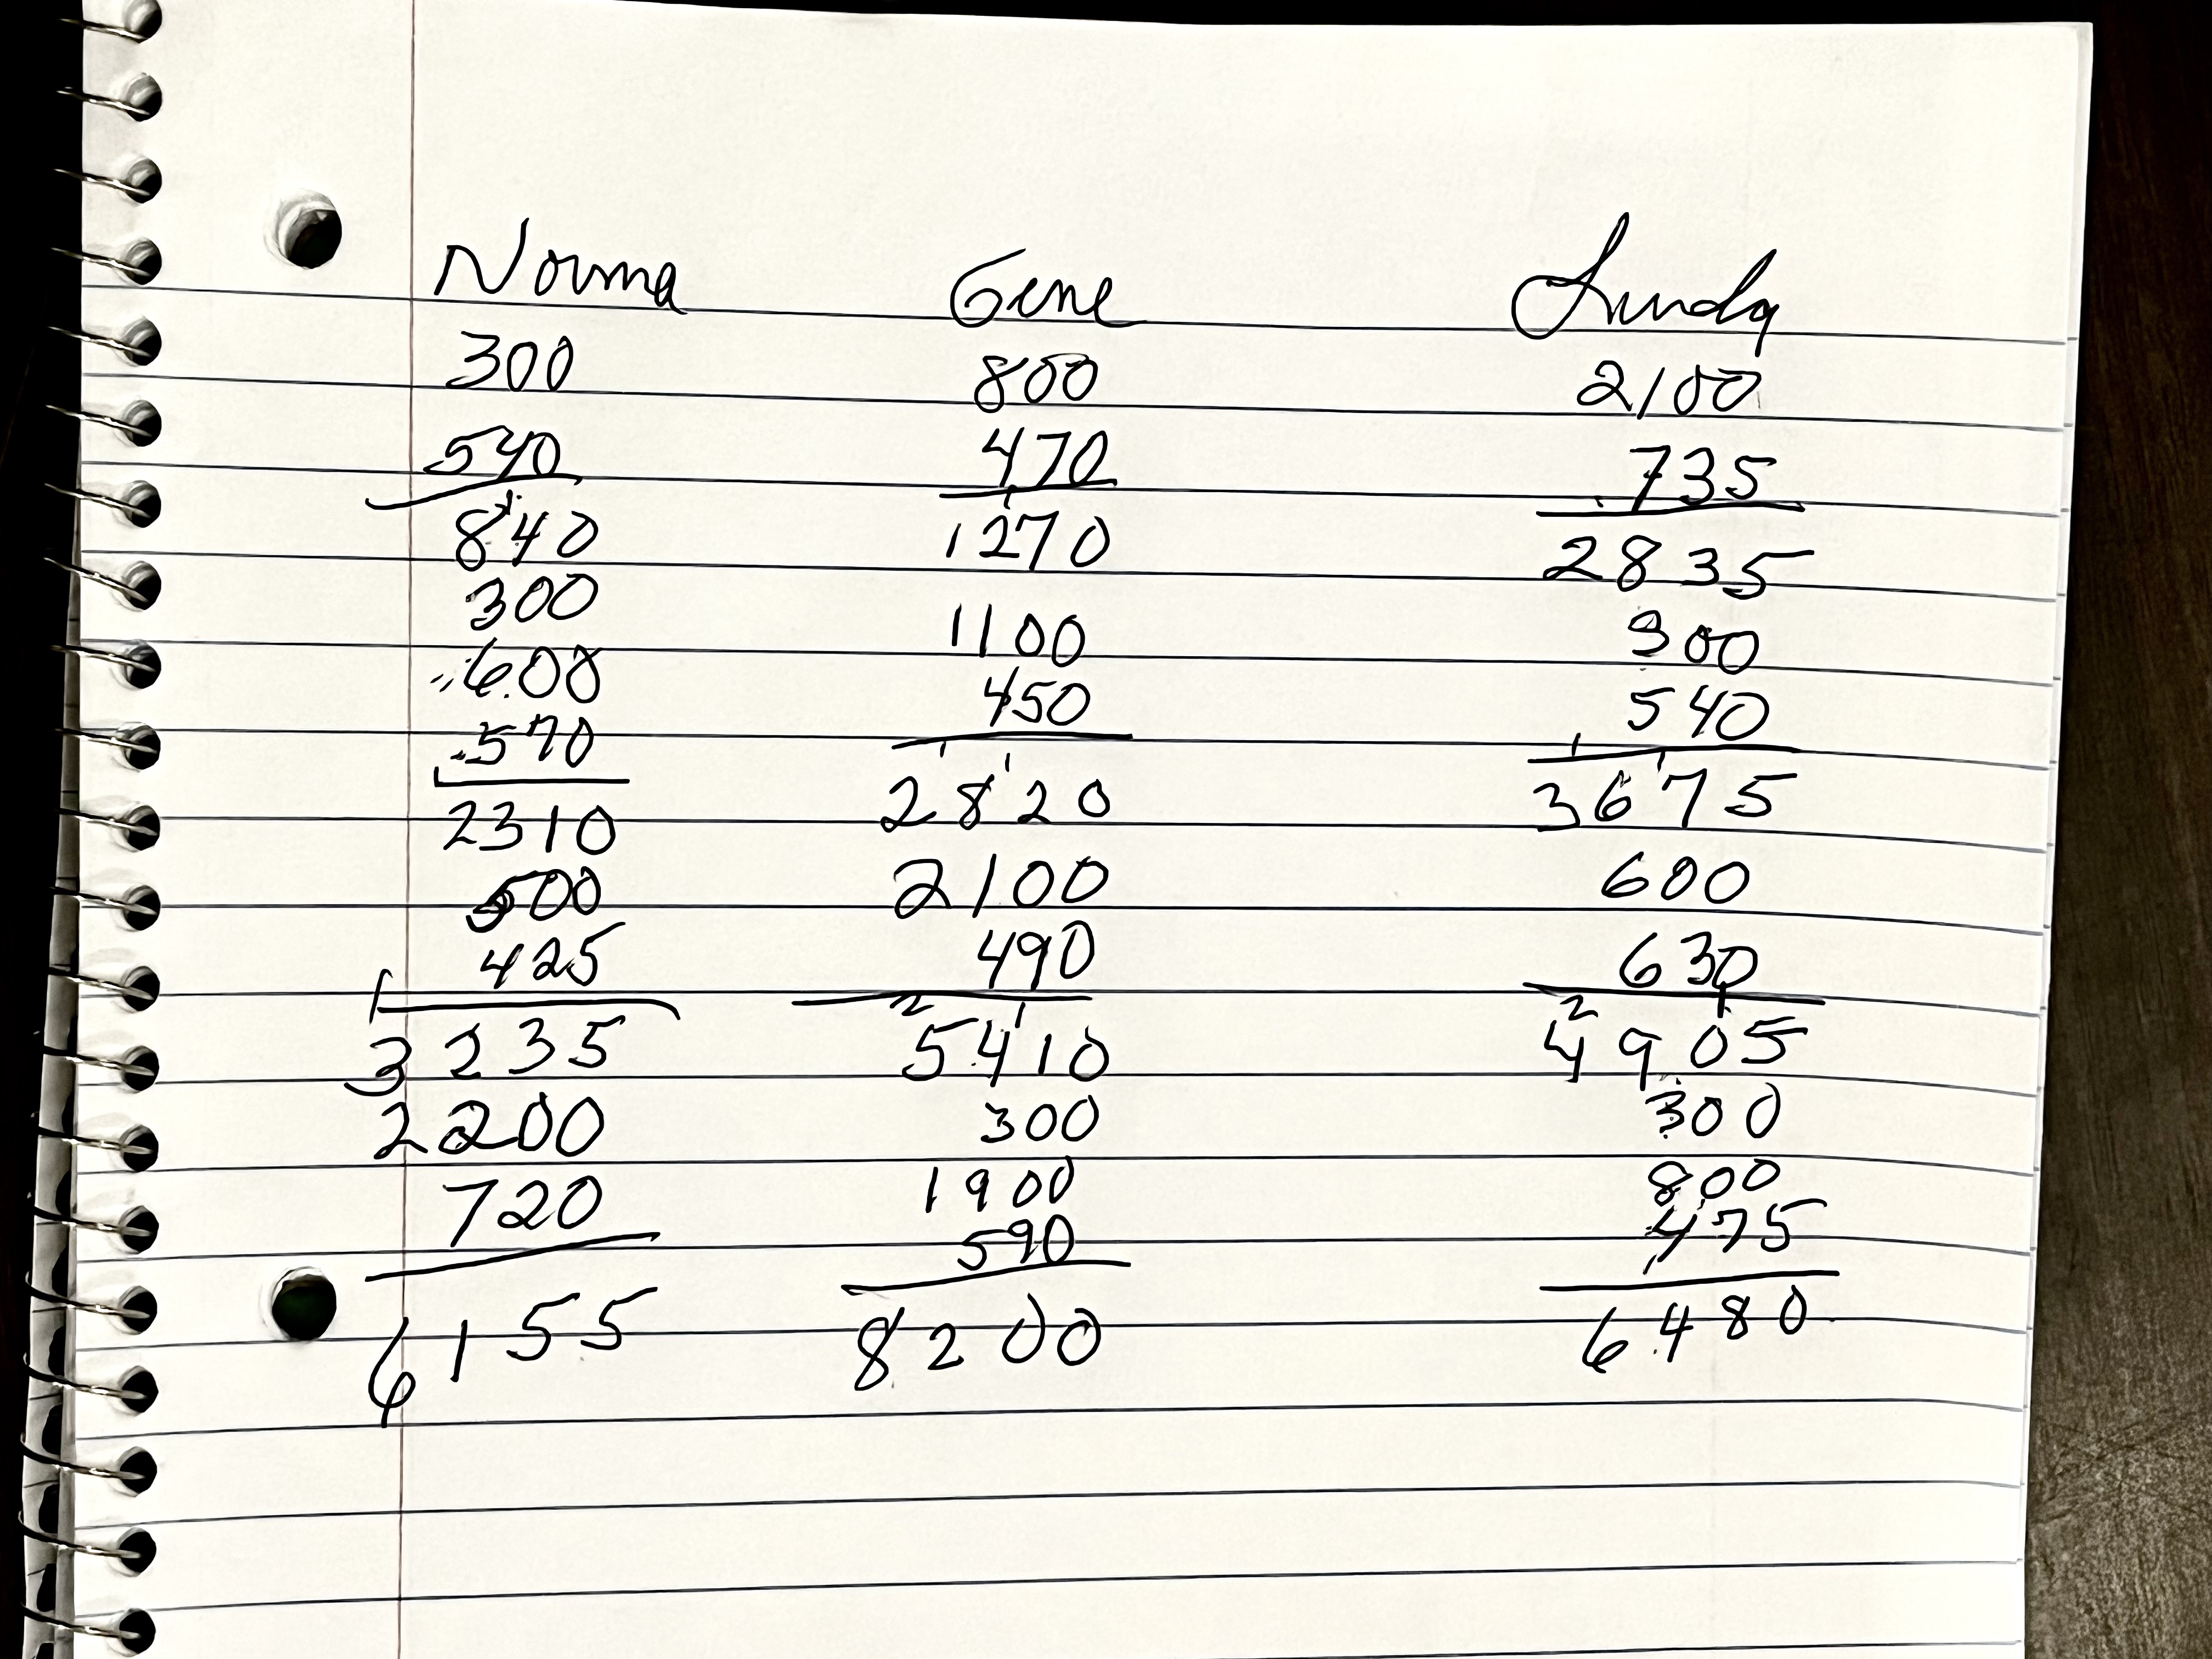 Norma
300
540
840
300
600
570
2310
500
425
3235
2200
720
6155
Gene
800
470
1270
1100
450
2820
2100
490
5410
300
1900
590
8200
Linda
2100
735
2835
300
540
3675
600
630
4905
300
800
475
6480